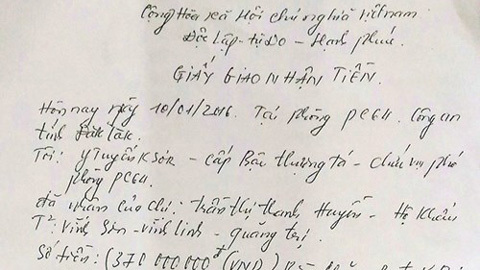 Cộng Hòa xã Hội chủ nghĩa Việt nam
Độc lập - tự Do - Hạnh phúc.
GIẤY GIAO NHẬN TIỀN.
Hôm nay ngày 10/01/2016. Tại phòng PC64. Công an
tỉnh Đắk Lắk.
Tôi: Y Tuyến KSơr - cấp Bậc thượng tá - chức vụ phó
phòng PC64.
đã nhận của chị: Trần thị thanh Huyền - Hộ Khẩu
T²: Vĩnh Sơn - vĩnh linh - quảng trị.
Số tiền: (370 000 000đ (VND)